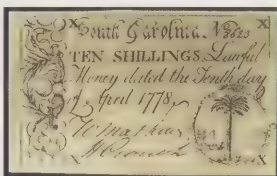 South Carolina. No 3623
TEN SHILLINGS, Lawful
Money dated the Tenth day
of April 1778,